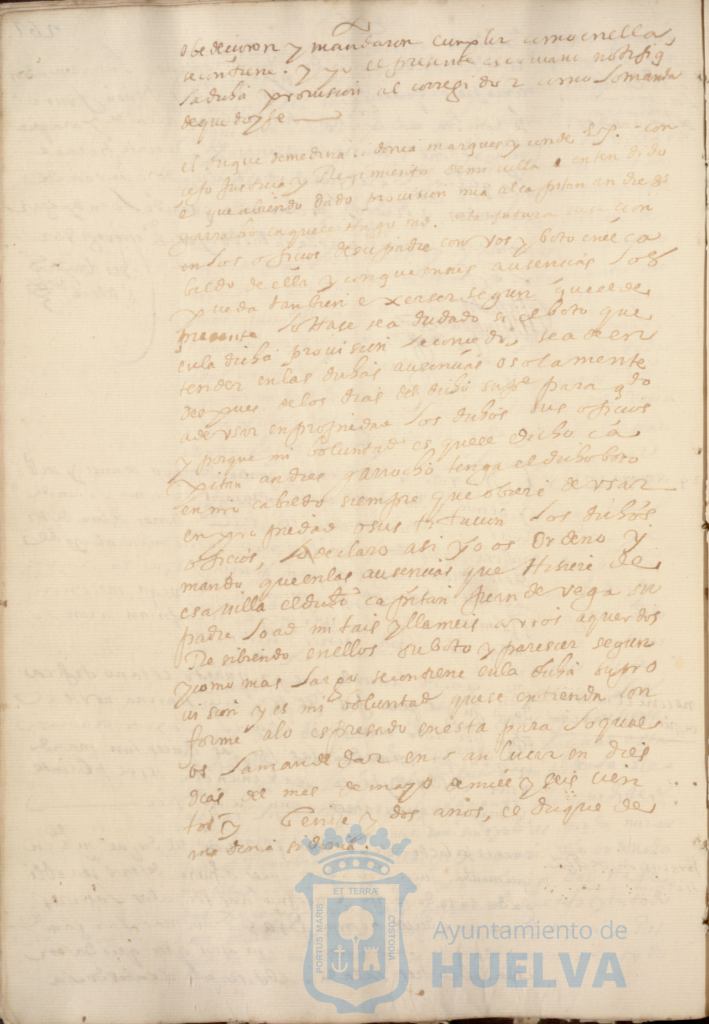 obedecieron y mandaron cumplir como en ella
se contiene. y yo el presente escrivano notifiq
la dicha provision al corregidor como lo manda
de que doy fe
el duque de medina sidonia marques y conde
Justicia y Regimiento de mi villa entendido
e que abiendo dado provision mia al capitan andres
garrocho
en los oficios de su padre con vos y boto en el ca
bildo de ella y con que en mis ausencias los
pueda tambien exerser segun que el de
presente lo Hase se a dudado si el boto que
en la dicha provision le consedi se a de en
tender en las dichas ausencias o solamente
despues de los dias del dicho su pe para qdo
a de usar en propiedad los dichos sus oficios
y porque mi boluntad es que el dicho ca
pitan andres garrocho tenga el dicho boto
en mi cabildo siempre que obiere de usar
en propiedad o sustitucion los dichos
oficios, lo declaro asi y os Ordeno y
mando que en las ausencias que Hisiere de
esa villa el dicho capitan Juan de vega su
padre lo admitais y llameis a vros aquerdos
Resibiendo en ellos su boto y pareser segun
y como mas largo se contiene en la dicha su pro
vision y es mi boluntad que se entienda con
forme a lo espresado en esta para lo qual
os la mande dar en san lucar en dies
dias del mes de mayo de mill y seis cien
tos y Veinte y dos años, el duque de
medina sidonia.
PORTUS MARIS
ET TERRÆ
CUSTODIA
Ayuntamiento de
HUELVA